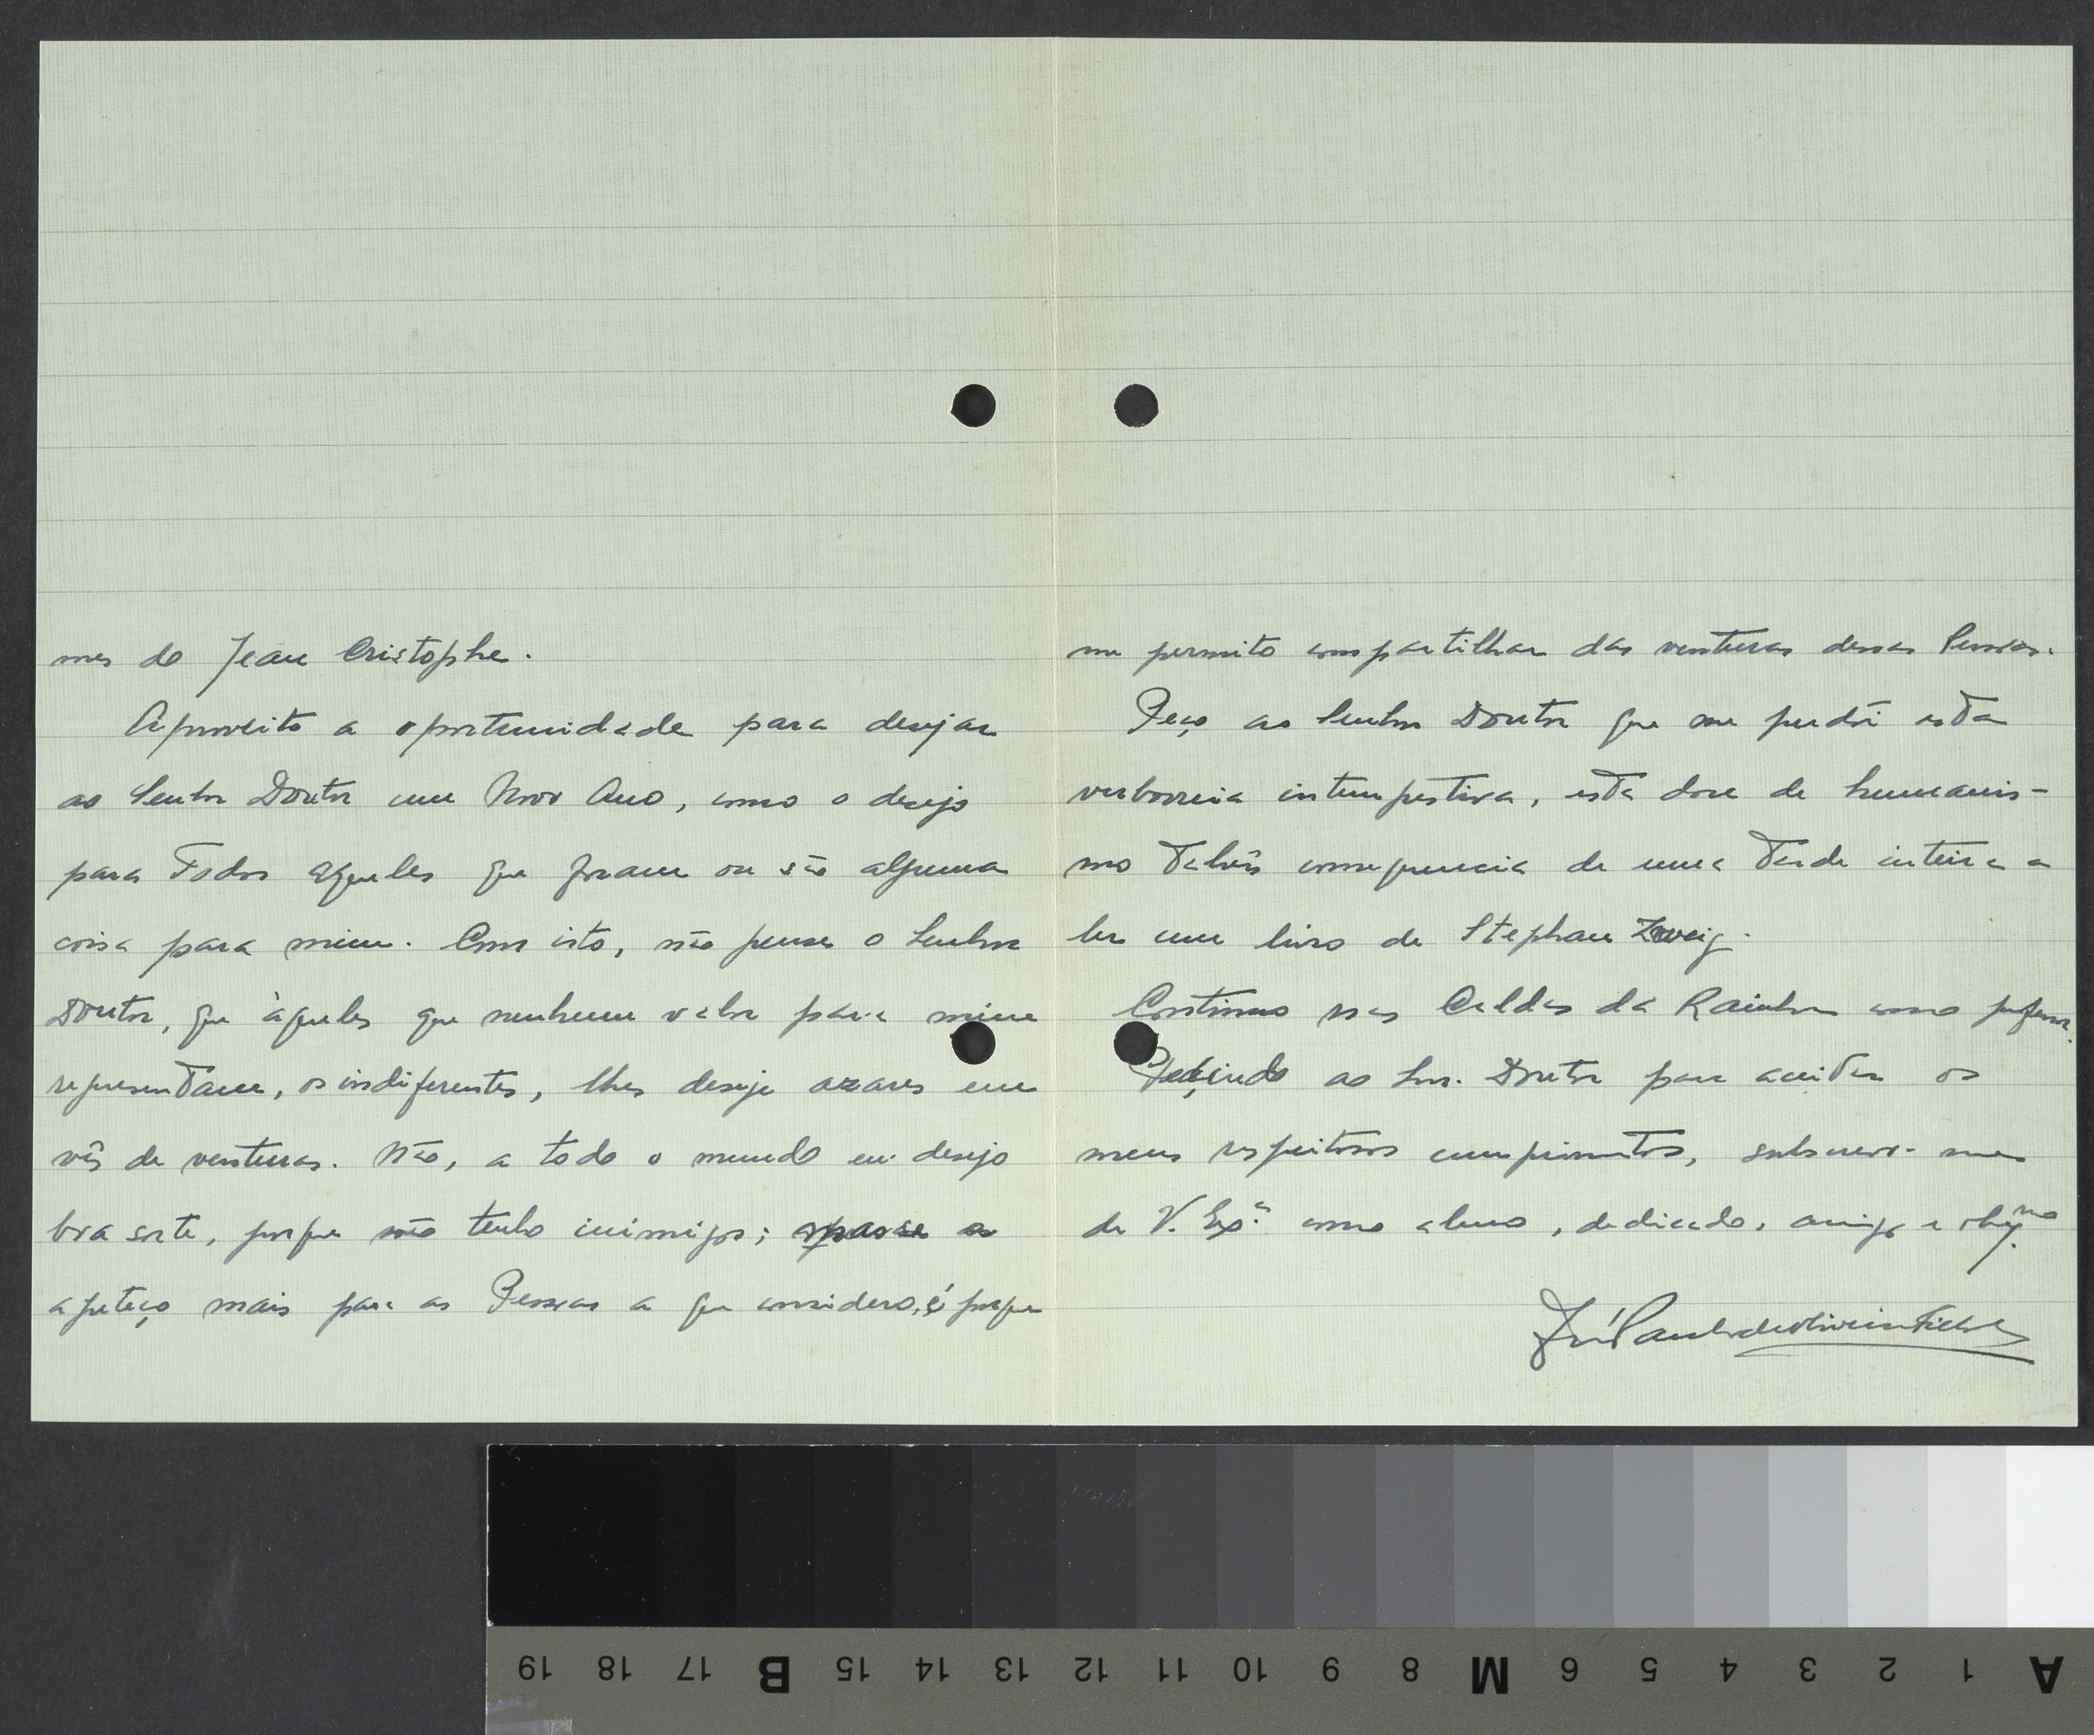 mes do Jean Cristophe.
Aproveito a oportunidade para desejar
ao Senhor Doutor um Novo Ano, como o desejo
para Todos aqueles que foram ou são alguma
coisa para mim. Com isto, não pense o Senhor
Doutor, que àqueles que nenhum valor para mim
representam, os indiferentes, lhes deseje azares em
vês de venturas. Não, a todo o mundo eu desejo
boa sorte, porque não tenho inimigos;
apeteço mais para as Pessoas a que considero, é porque
me permito compartilhar das venturas dessas Pessoas.
Peço ao Senhor Doutor que me perdôi esta
verborreia intempestiva, esta dose de humanis-
mo talvês consequencia de uma tarde inteira a
ler um livro de Stephan Zweig.
Continuo nas Caldas da Rainha como professor.
Pedindo ao Snr. Doutor para aceitar os
meus respeitosos cumprimentos, subscrevo-me
de V. Exª. como aluno, dedicado, amigo e obgmo.
José Paulo de Oliveira
19 18 17 B 15 14 13 12 11 10 9 8 M 6 5 4 3 2 1 A